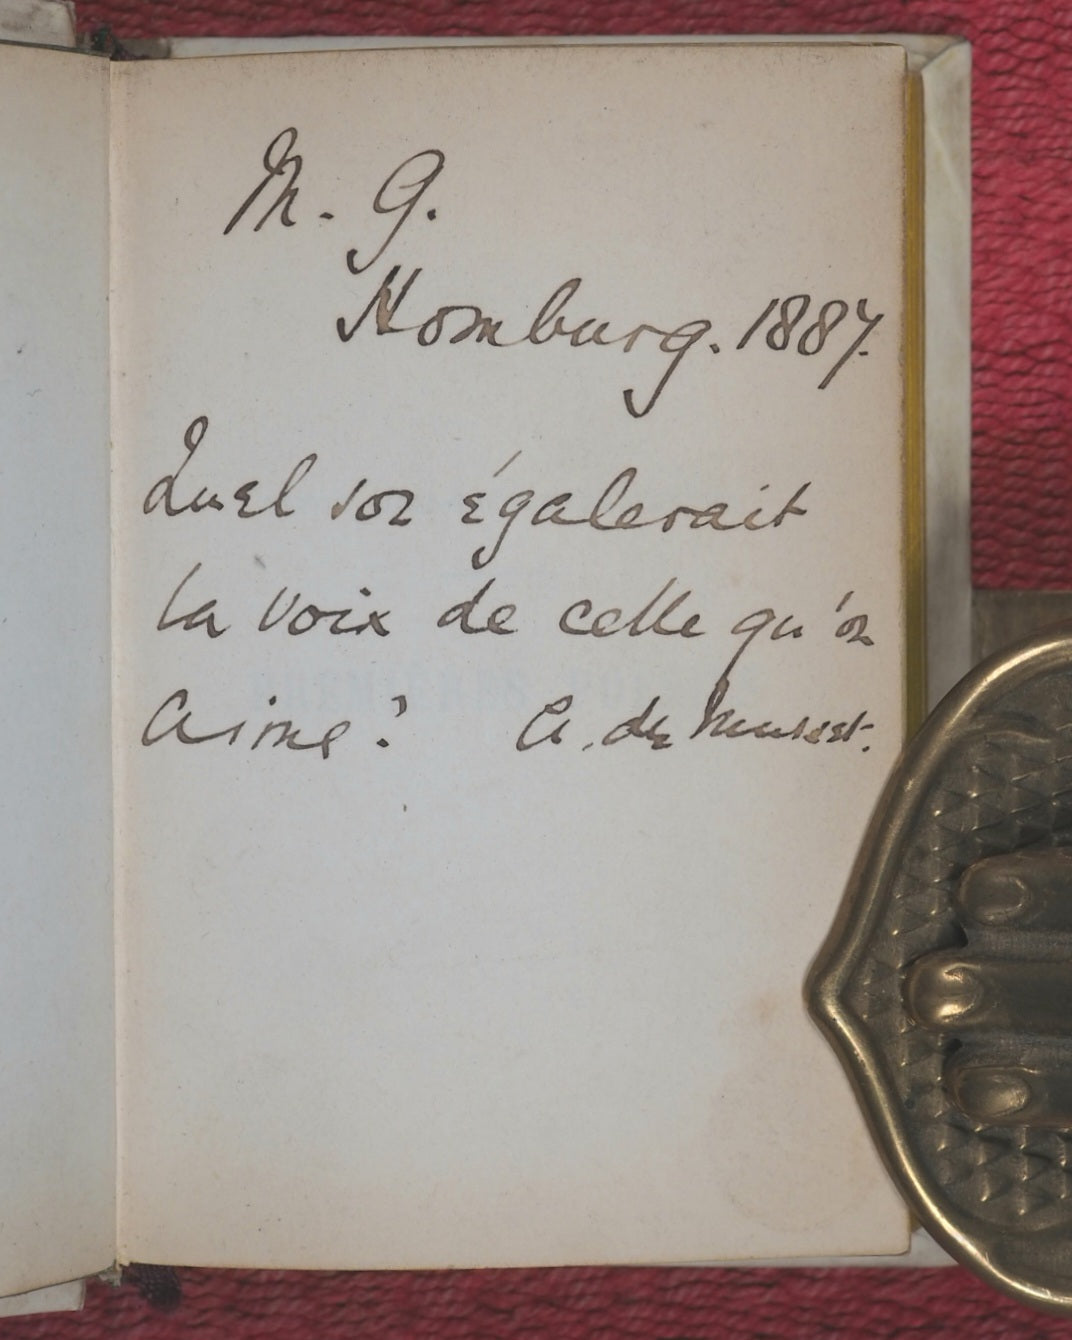 M. G.
Homburg. 1887.
Quel son égalerait
la voix de celle qu'on
aime? A. de Musset.